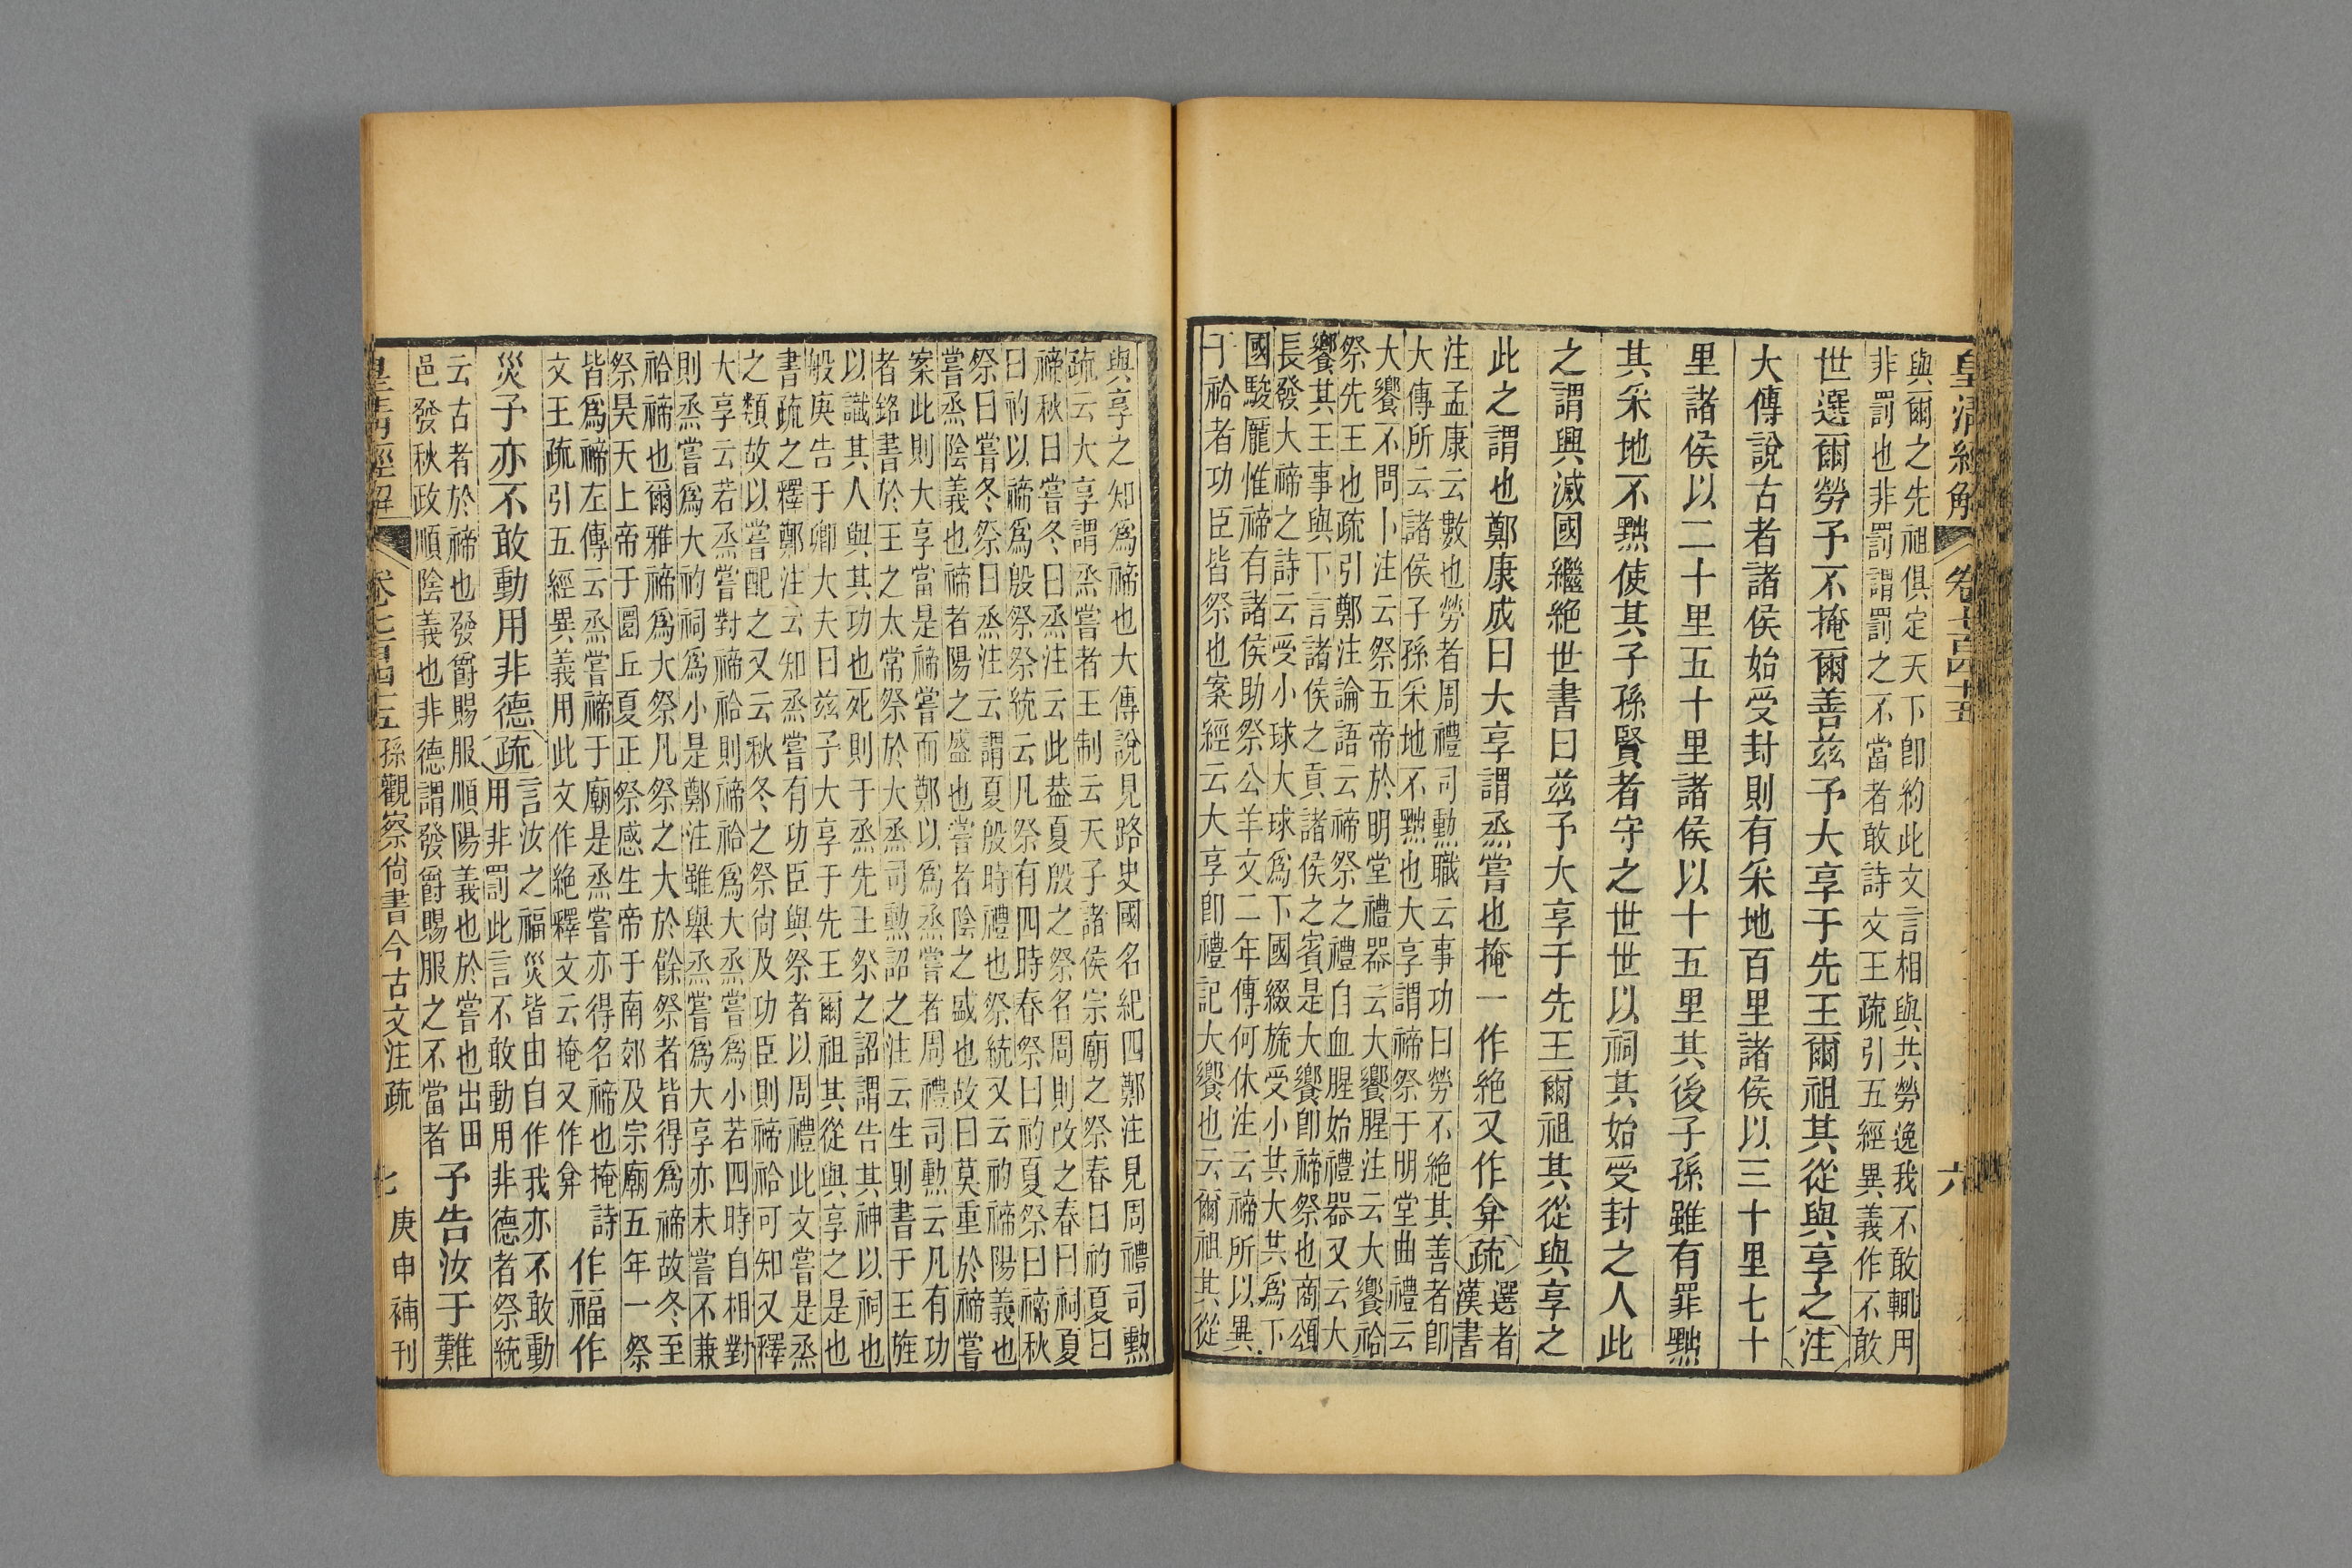 皇清經解 卷七百四十五 六
與爾之先祖俱定天下卽約此文言相與共勞逸我不敢輒用
非罰也非罰謂罰之不當者敢詩文王疏引五經異義作不敢
世選爾勞予不掩爾善茲予大享于先王爾祖其從與享之注
大傳說古者諸侯始受封則有采地百里諸侯以三十里七十
里諸侯以二十里五十里諸侯以十五里其後子孫雖有罪黜
其采地不黜使其子孫賢者守之世世以祠其始受封之人此
之謂興滅國繼絕世書曰茲予大享于先王爾祖其從與享之
此之謂也鄭康成曰大享謂烝嘗也掩一作絶又作弇疏
選者
漢書
注孟康云數也勞者周禮司勳職云事功曰勞不絶其善者卽
大傳所云諸侯子孫采地不黜也大享謂禘祭于明堂曲禮云
大饗不問卜注云祭五帝於明堂禮器云大饗腥注云大饗祫
祭先王也疏引鄭注論語云禘祭之禮自血腥始禮器又云大
饗其王事與下言諸侯之貢諸侯之賓是大饗卽禘祭也商頌
長發大禘之詩云受小球大球爲下國綴旒受小共大共爲下
國駿龎惟禘有諸侯助祭公羊文二年傳何休注云禘所以異
于祫者功臣皆祭也案經云大享卽禮記大饗也云爾祖其從
與享之知爲禘也大傳說見路史國名紀四鄭注見周禮司勳
疏云大享謂烝嘗者王制云天子諸侯宗廟之祭春曰礿夏曰
禘秋曰嘗冬曰烝注云此葢夏殷之祭名周則改之春曰祠夏
曰礿以禘爲殷祭祭統云凡祭有四時春祭曰礿夏祭曰禘秋
祭曰嘗冬祭曰烝注云謂夏殷時禮也祭統又云礿禘陽義也
嘗烝陰義也禘者陽之盛也嘗者陰之盛也故曰莫重於禘嘗
案此則大享當是禘嘗而鄭以爲烝嘗者周禮司勳云凡有功
者銘書於王之太常祭於大烝司勳詔之注云生則書于王旌
以識其人與其功也死則于烝先王祭之詔謂告其神以祠也
般庚告于卿大夫曰茲予大享于先王爾祖其從與享之是也
書疏之釋鄭注云知烝嘗有功臣與祭者以周禮此文嘗是烝
之類故以嘗配之又云秋冬之祭尙及功臣則禘祫可知又釋
大享云若烝嘗對禘祫則禘祫爲大烝嘗爲小若四時自相對
則烝嘗爲大礿祠爲小是鄭注雖舉烝嘗爲大享亦未嘗不兼
祫禘也爾雅禘爲大祭凡祭之大於餘祭者皆得爲禘故冬至
祭昊天上帝于圜丘夏正祭感生帝于南郊及宗廟五年一祭
皆爲禘左傳云烝嘗禘于廟是烝嘗亦得名禘也掩詩
文王疏引五經異義用此文作絶釋文云掩又作弇
作福作
災予亦不敢動用非德疏
言汝之福災皆由自作我亦不敢動
用非罰此言不敢動用非德者祭統
云古者於禘也發爵賜服順陽義也於嘗也出田
邑發秋政順陰義也非德謂發爵賜服之不當者
予告汝于難
皇清經解 卷七百四十五 孫觀察尙書今古文注疏 七 庚申補刊